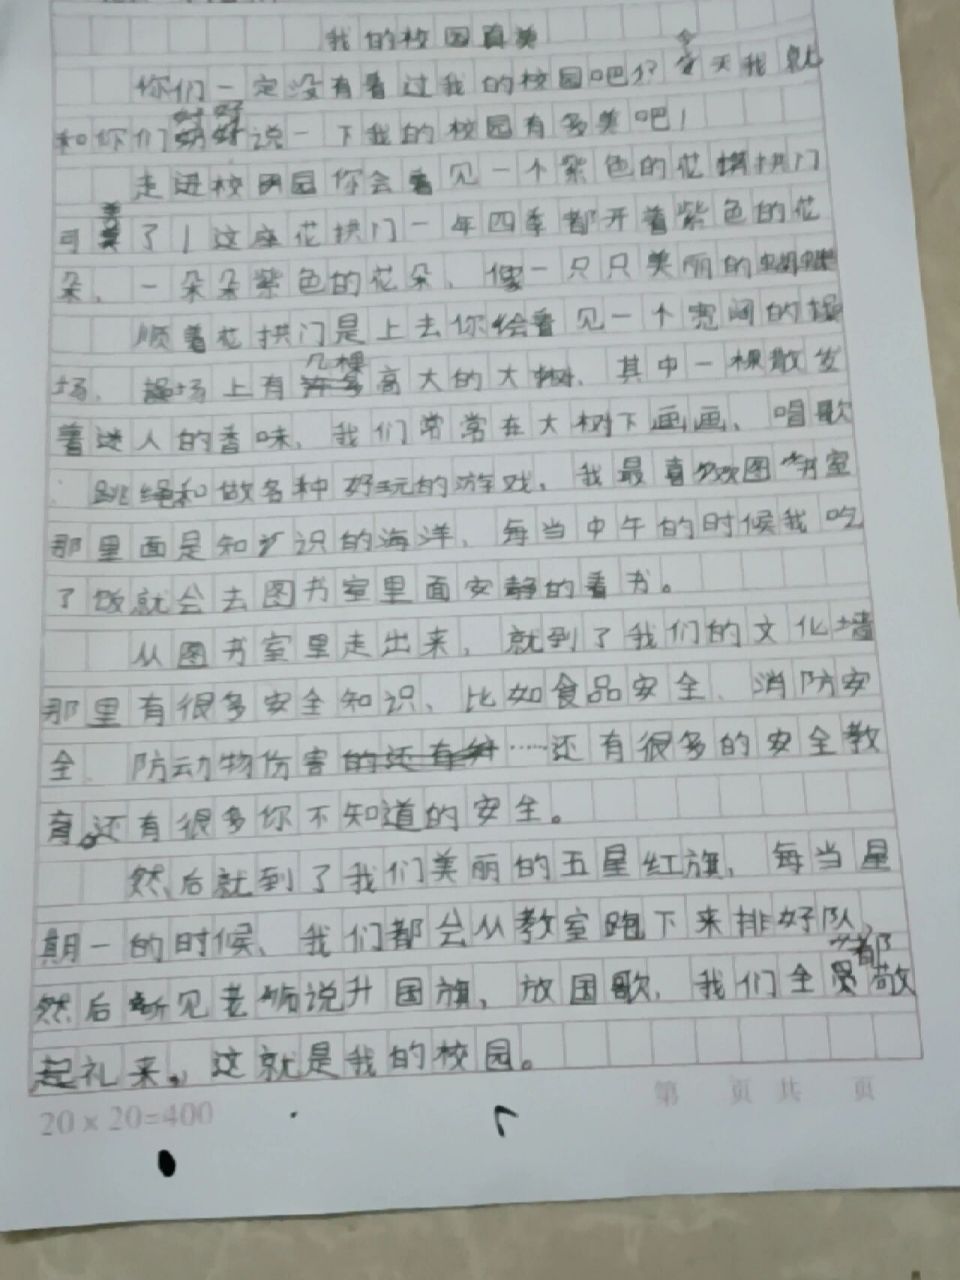 我的校园真美
你们一定没有看过我的校园吧？今天我就
和你们好好说一下我的校园有多美吧！
走进校园你会看见一个紫色的花拱门
可美了！这座花拱门一年四季都开着紫色的花
朵、一朵朵紫色的花朵、像一只只美丽的蝴蝶
顺着花拱门是上去你会看见一个宽阔的操
场、操场上有几棵高大的大树、其中一棵散发
着迷人的香味、我们常常在大树下画画、唱歌
跳绳和做各种好玩的游戏、我最喜欢图书室
那里面是知识的海洋、每当中午的时候我吃
了饭就会去图书室里面安静的看书。
从图书室里走出来，就到了我们的文化墙
那里有很多安全知识、比如食品安全、消防安
全、防动物伤害……还有很多的安全教
育。还有很多你不知道的安全。
然后就到了我们美丽的五星红旗、每当星
期一的时候、我们都会从教室跑下来排好队，
然后听见老师说升国旗、放国歌、我们全都敬
起礼来。这就是我的校园。
20×20=400
第 页 共 页